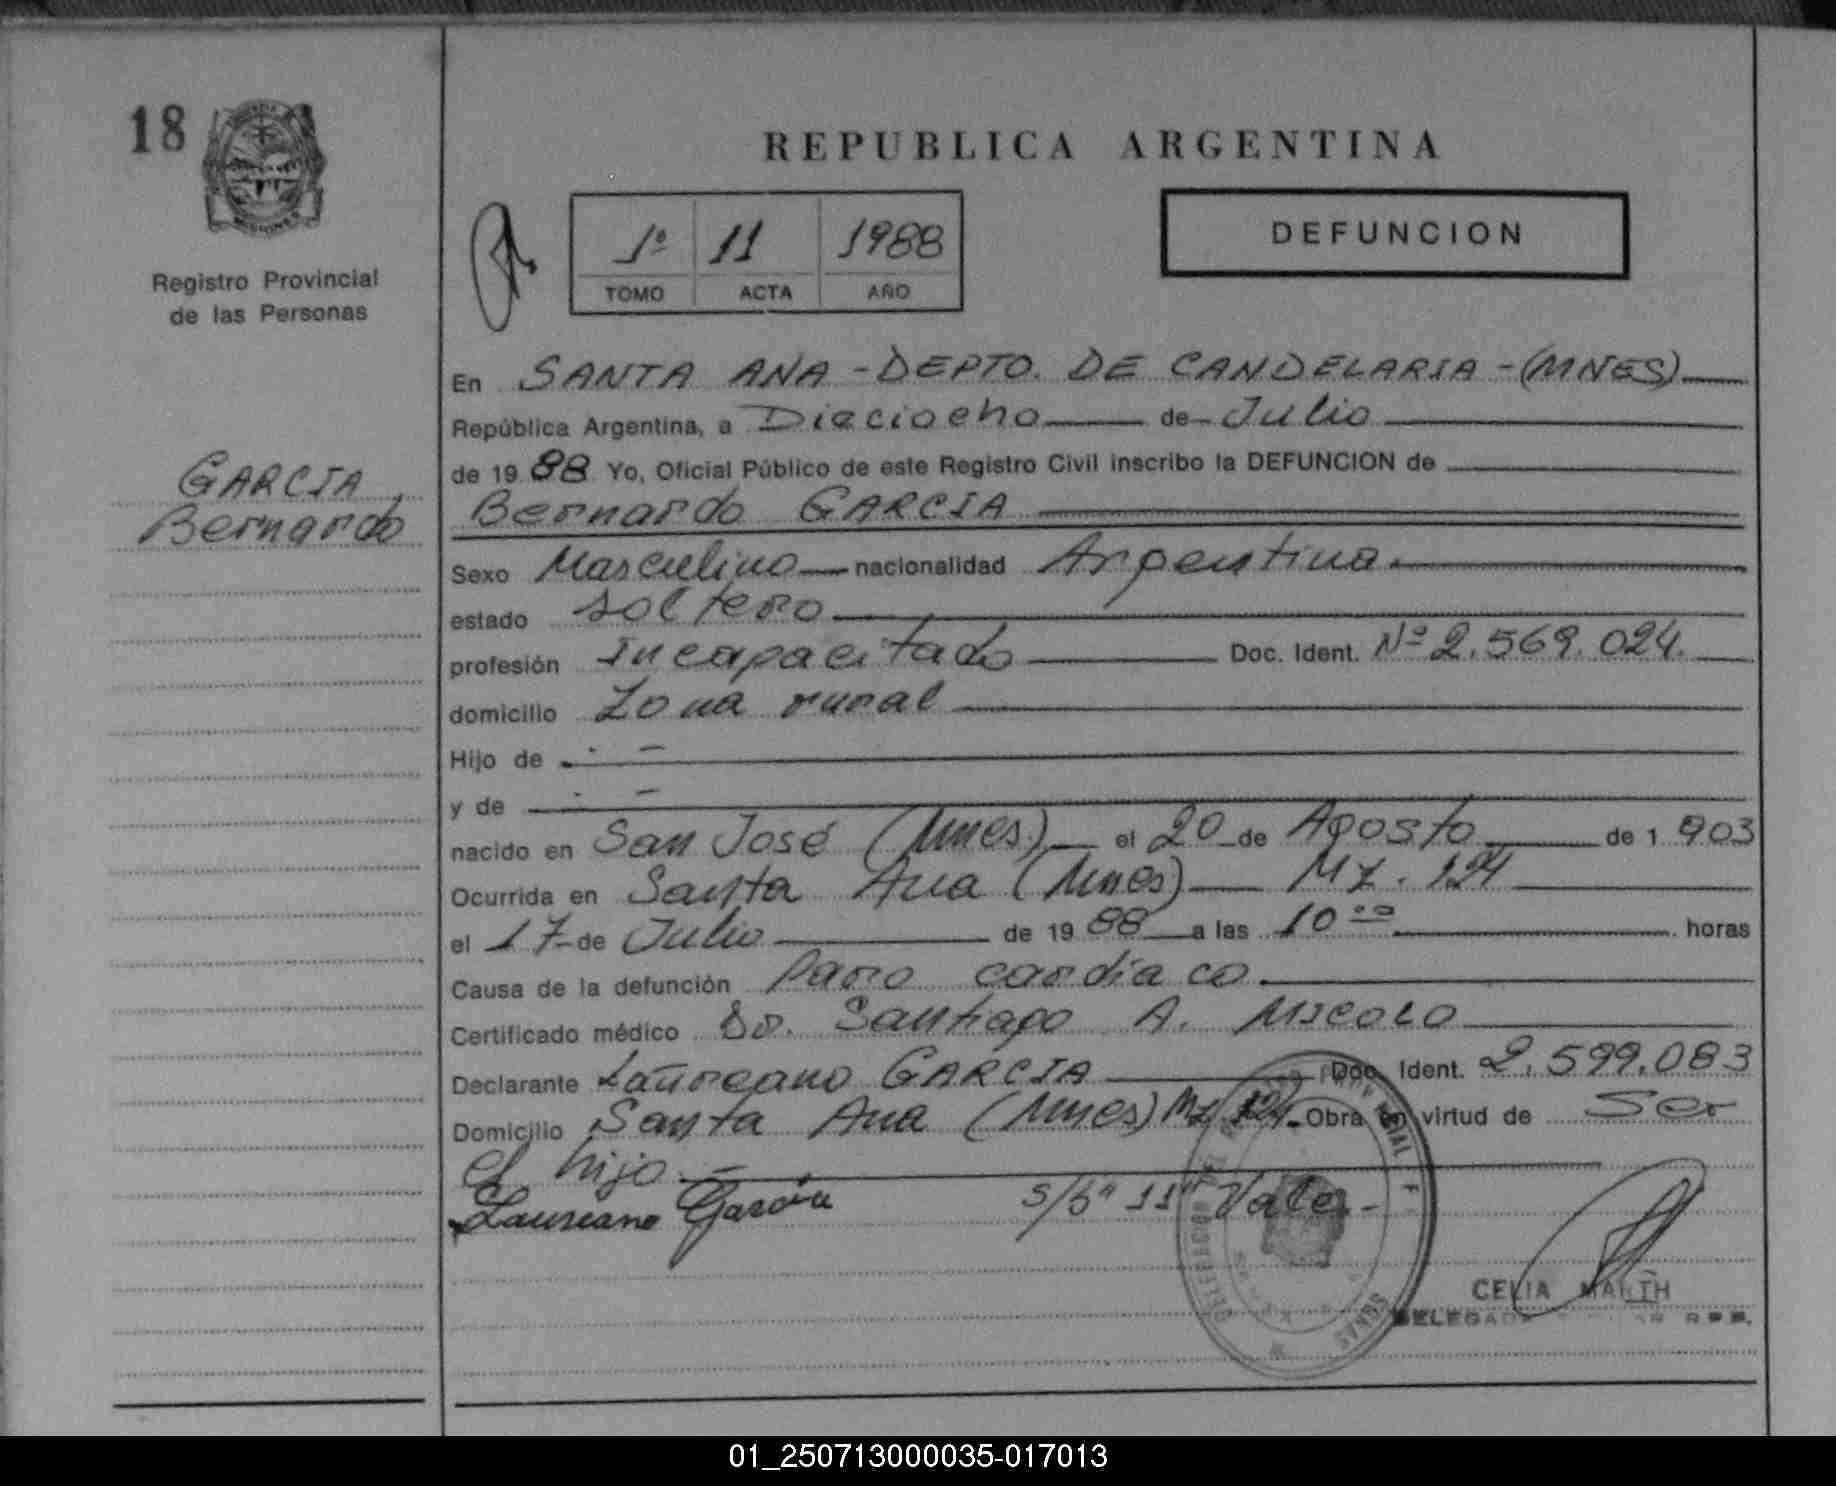 18
MISIONES
Registro Provincial
de las Personas
GARCIA
Bernardo
REPUBLICA ARGENTINA
1º 11 1988
TOMO ACTA AÑO
DEFUNCION
En SANTA ANA - DEPTO. DE CANDELARIA - (MNES)
República Argentina, a Dieciocho de Julio
de 19 88 Yo, Oficial Público de este Registro Civil inscribo la DEFUNCION de
Bernardo GARCIA
Sexo Masculino nacionalidad Argentina.
estado soltero
profesión Incapacitado Doc. Ident. Nº 2.569.024.
domicilio Zona rural
Hijo de . -
y de . -
nacido en San José (Mnes.) el 20 de Agosto de 1 903
Ocurrida en Santa Ana (Mnes) Mz. 124
el 17 de Julio de 19 88 a las 10 ºº horas
Causa de la defunción Paro cardíaco
Certificado médico Dr. Santiago A. MICOLO
Declarante Laureano GARCIA Doc. Ident. 2.599.083
Domicilio Santa Ana (Mnes) Mz 124 Obra en virtud de Ser
el hijo. -
Laureano García s/bº 11" Vale. -
CELIA MARTH
01_250713000035-017013